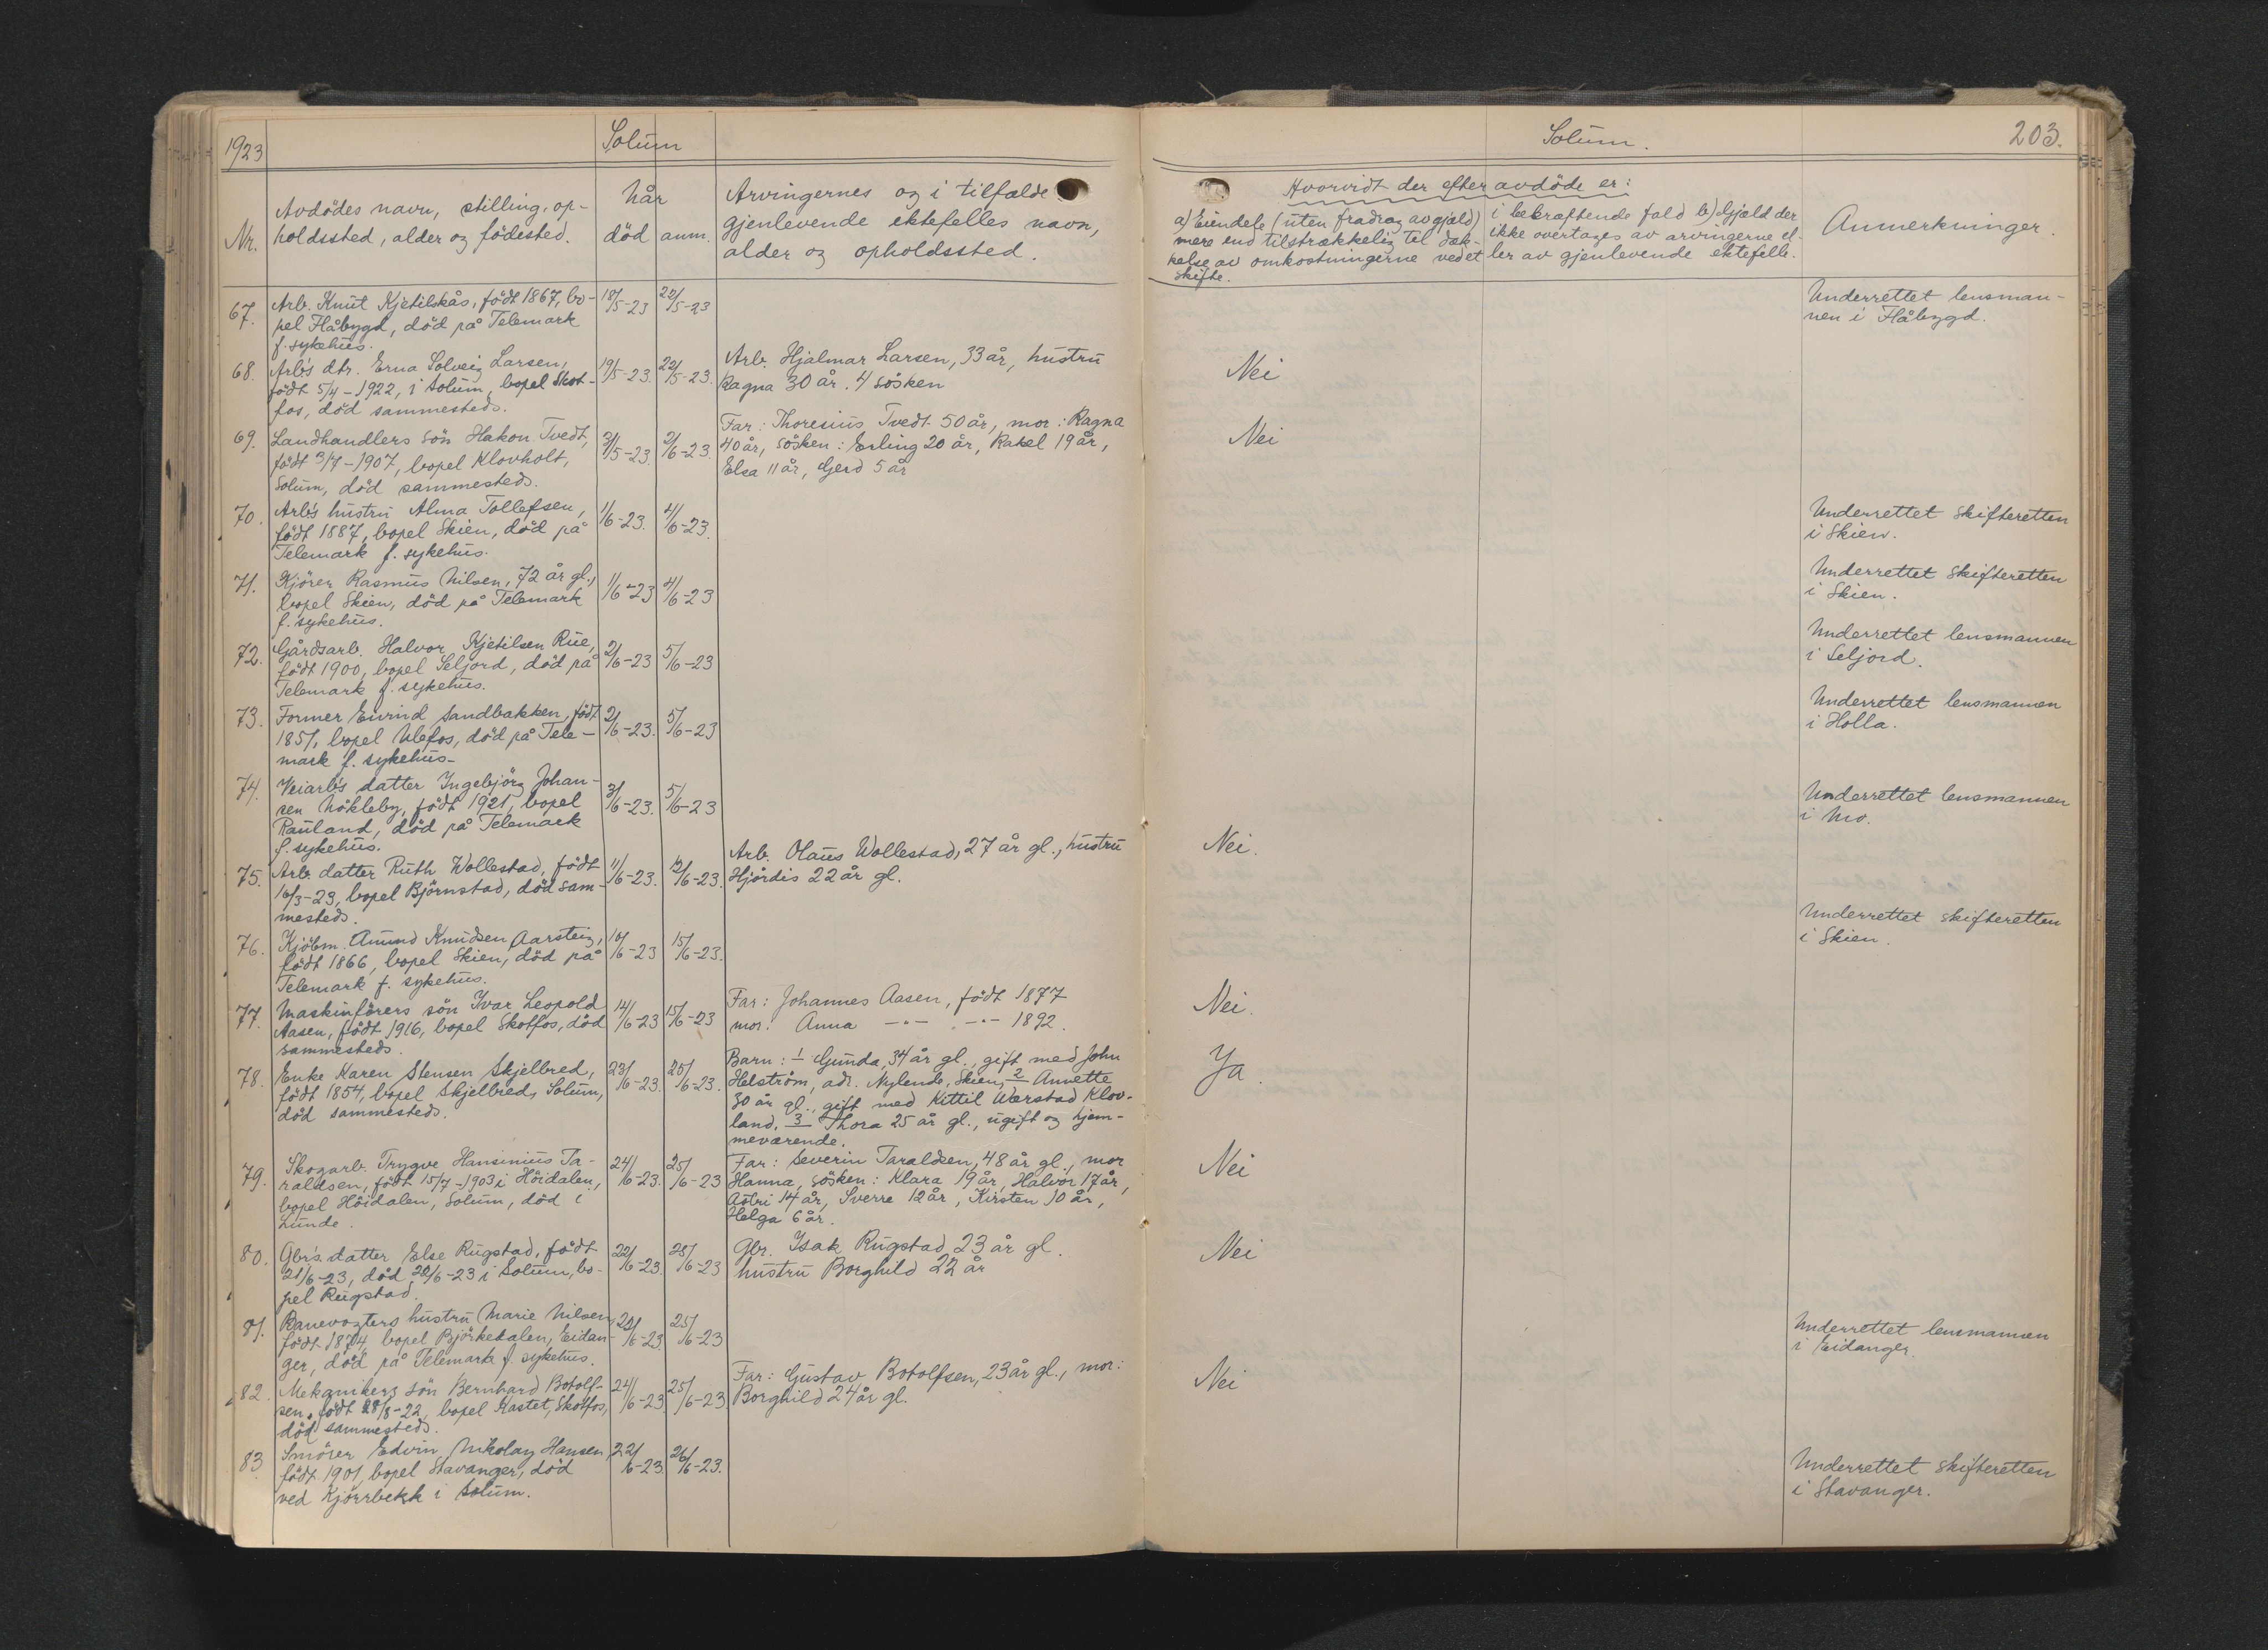 1923
Solum
Nr.
Avdödes navn, stilling, op-
holdssted, alder og födested.
Når
död
anm.
Arvingernes og i tilfælde
gjenlevende ektefelles navn,
alder og opholdssted.
67.
Arb. Knut Kjetilskås, födt 1867, bo-
pel Flåbygd, död på Telemark
f. sykehus.
18/5-23
22/5-23
68.
Arb's dtr. Erna Solveig Larsen,
födt 5/4-1922, i Solum, bopel Skot-
fos, död sammesteds.
19/5-23.
22/5-23.
Arb. Hjalmar Larsen, 33 år, hustru
Ragna 30 år. 4 sösken
69.
Landhandlers sön Hakon Tvedt,
födt 3/7-1907, bopel Klovholt,
Solum, död sammesteds.
31/5-23.
2/6-23.
Far: Thoresius Tvedt 50 år, mor: Ragna
40 år, sösken: Erling 20 år, Rakel 19 år,
Elsa 11 år, Gerd 5 år
70.
Arb's hustru Alma Tollefsen,
födt 1887, bopel Skien, död på
Telemark f. sykehus.
1/6-23.
4/6-23.
71.
Kjörer Rasmus Nilsen, 72 år gl.,
bopel Skien, död på Telemark
f. sykehus.
1/6-23
4/6-23
72.
Gårdsarb. Halvor Kjetilsen Rue,
födt 1900, bopel Seljord, död på
Telemark f. sykehus.
2/6-23
5/6-23
73.
Former Eivind Sandbakken, födt
1851, bopel Ulefos, död på Tele-
mark f. sykehus-
2/6-23.
5/6-23
74.
Veiarb's datter Ingebjörg Johan-
sen Nökleby, födt 1921, bopel
Rauland, död på Telemark
f. sykehus.
3/6-23.
5/6-23
75.
Arb. datter Ruth Wollestad, födt
16/3-23, bopel Björnstad, död sam-
mesteds.
11/6-23.
12/6-23.
Arb. Olaus Wollestad, 27 år gl., hustru
Hjördis 22 år gl.
76.
Kjöbm. Amund Knudsen Aarsteig,
födt 1866, bopel Skien, död på
Telemark f. sykehus.
10/6-23
15/6-23.
77.
Maskinförers sön Ivar Leopold
Aasen, födt 1916, bopel Skotfos, död
sammesteds.
14/6-23
15/6-23
Far: Johannes Aasen, födt 1877
mor: Anna -"- -"- 1892.
78.
Enke Karen Stensen Skjelbred,
födt 1854, bopel Skjelbred, Solum,
död sammesteds.
23/6-23.
25/6-23.
Barn: 1 Gunda, 34 år gl., gift med John
Helström, adr. Nylende, Skien, 2 Annette
30 år gl., gift med Kittil Værstad Klov-
land. 3 Thora 25 år gl., ugift og hjem-
meværende.
79.
Skogarb. Trygve Hansinius Ta-
raldsen, födt 15/7-1903 i Höidalen,
bopel Höidalen, Solum, död i
Lunde.
24/6-23.
25/6-23
Far: Severin Taraldsen, 48 år gl., mor
Hanna, sösken: Klara 19 år, Halvor 17 år,
Astri 14 år, Sverre 12 år, Kirsten 10 år,
Helga 6 år.
80.
Gbr's datter Else Rugstad, födt
21/6-23, död 22/6-23 i Solum, bo-
pel Rugstad.
22/6-23.
25/6-23
Gbr. Isak Rugstad 23 år gl.
hustru Borghild 22 år
81.
Banevogters hustru Marie Nilsen,
födt 1874, bopel Björkedalen, Eidan-
ger, död på Telemark f. sykehus.
22/6-23.
25/6-23
82.
Mekanikers sön Bernhard Botolf-
sen, födt 28/8-22, bopel Rastet, Skotfos,
död sammesteds.
24/6-23.
25/6-23.
Far: Gustav Botolfsen, 23 år gl., mor:
Borghild 24 år gl.
83
Smörer Edvin Nikolay Hansen,
födt 1901, bopel Stavanger, död
ved Kjörrbekk i Solum.
22/6-23.
26/6-23.
Solum.
203.
Hvorvidt der efter avdöde er:
a) Eiendele (uten fradrag av gjæld)
mere end tilstrækkelig til dæk-
kelse av omkostningerne ved et
skifte.
i bekræftende fald b) Gjæld der
ikke overtages av arvingerne el-
ler av gjenlevende ektefelle.
Anmerkninger.
Underrettet lensman-
nen i Flåbygd.
Nei
Nei
Underrettet skifteretten
i Skien.
Underrettet skifteretten
i Skien.
Underrettet lensmannen
i Seljord.
Underrettet lensmannen
i Holla.
Underrettet lensmannen
i Mo.
Nei.
Underrettet skifteretten
i Skien.
Nei.
Ja.
Nei
Nei
Underrettet lensmannen
i Eidanger.
Nei
Underrettet skifteretten
i Stavanger.